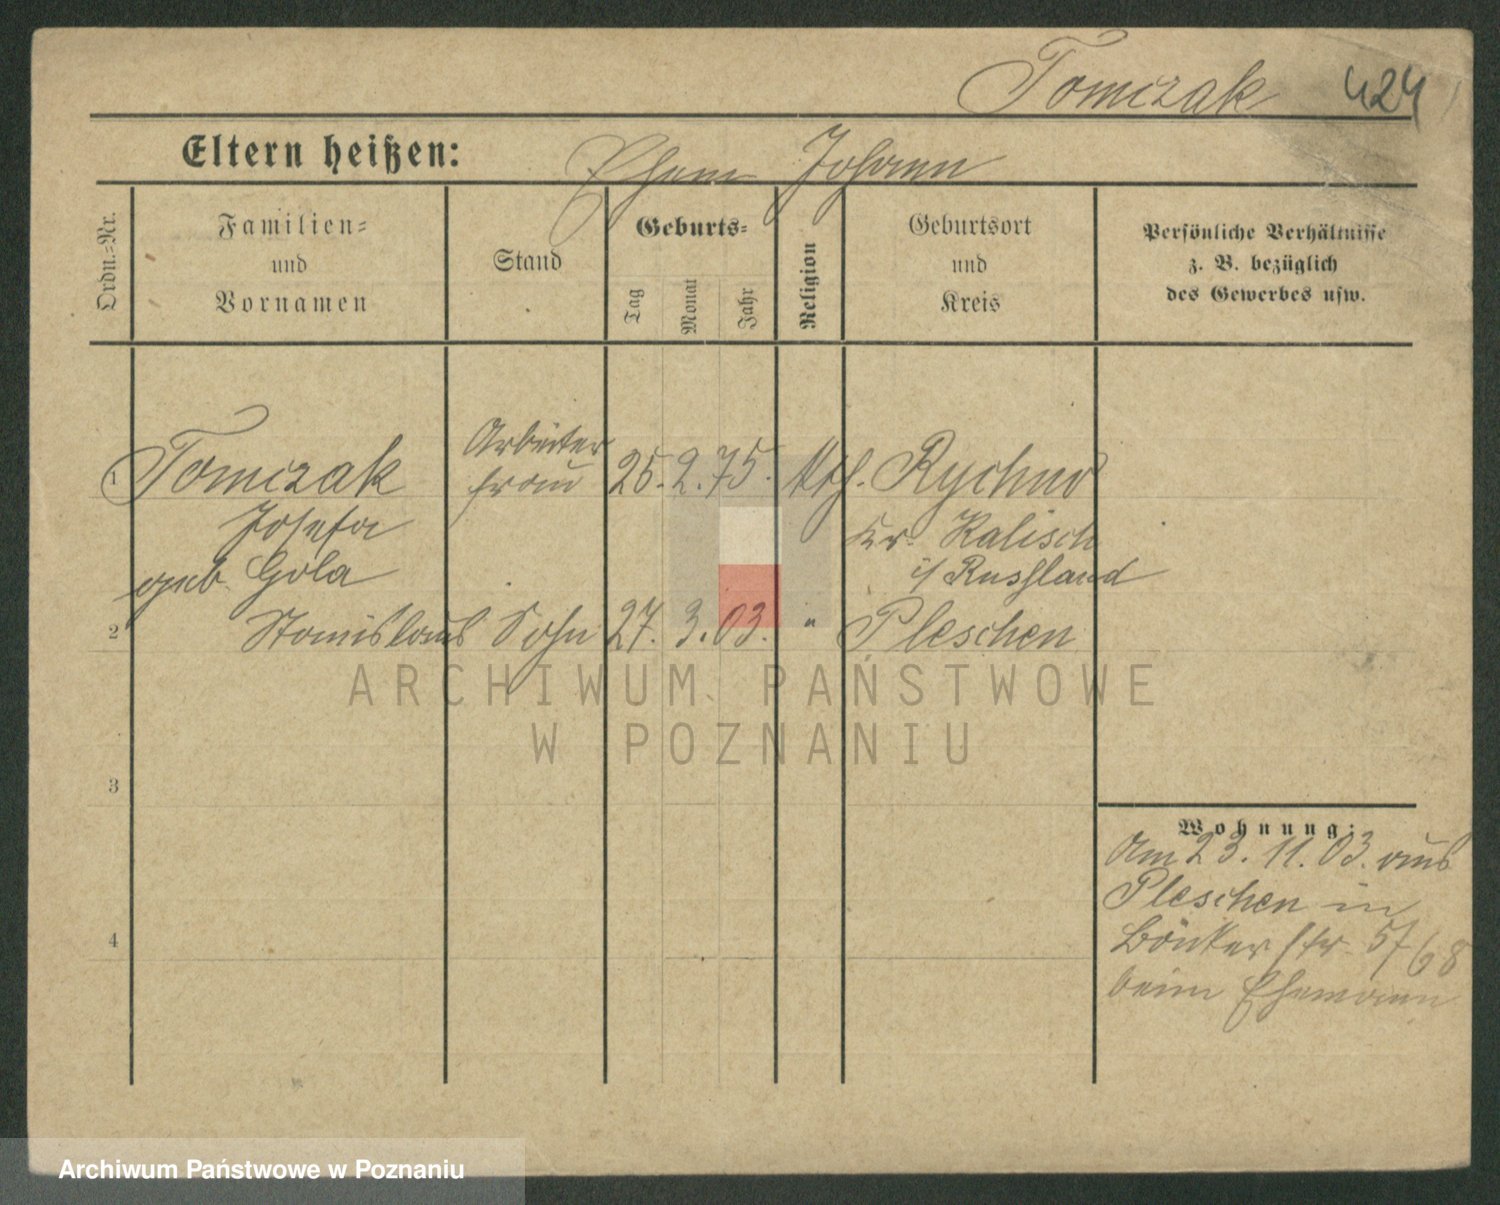 Tomczak 424
Eltern heißen: Ehem Johann
Ordn.-Nr.
Familien-
und
Vornamen
Stand
Geburts-
Tag
Monat
Jahr
Religion
Geburtsort
und
Kreis
Persönliche Verhältnisse
z. B. bezüglich
des Gewerbes usw.
1 Tomczak Arbeiter frau 25. 2. 75. kth. Rychno
Josefa Kr. Kalisch
geb. Gola i/ Russland
2 Stanislaus Sohn 27. 3. 03. " Pleschen
3
4
Wohnung:
Am 23. 11. 03. aus
Pleschen in
str. 57/68
beim Ehemann
ARCHIWUM PAŃSTWOWE
W POZNANIU
Archiwum Państwowe w Poznaniu